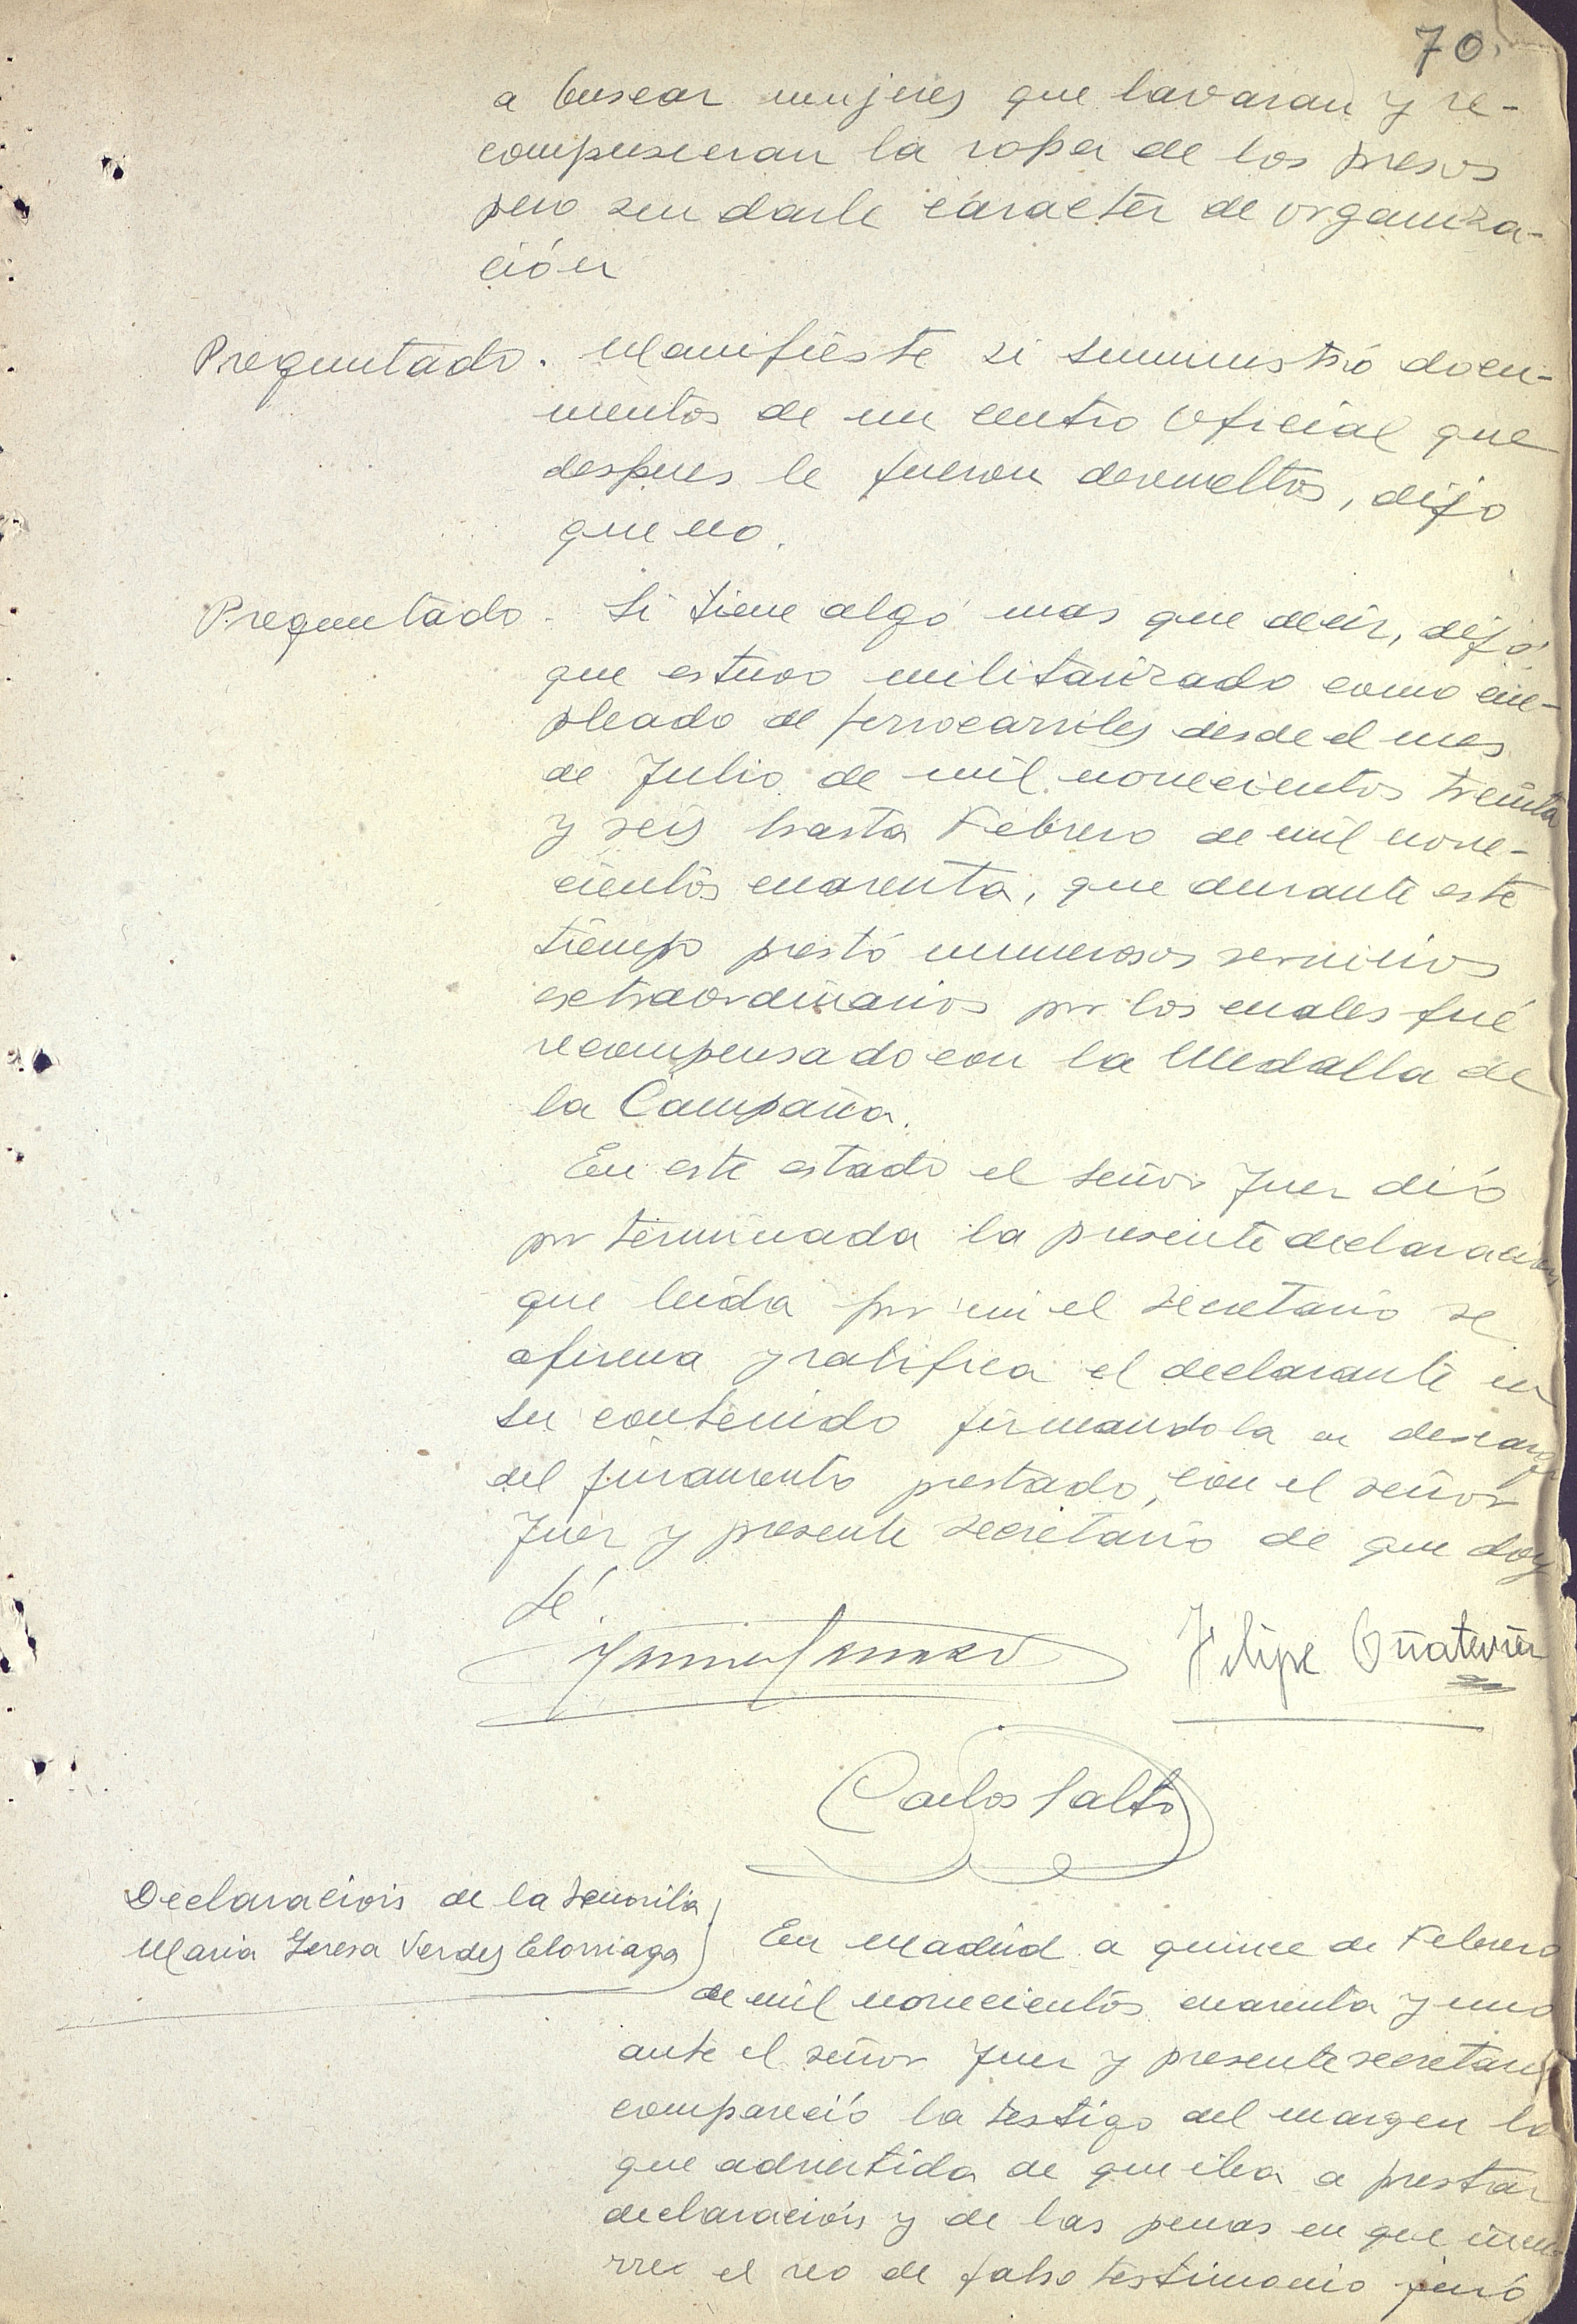 70.
a buscar mujeres que lavaran y re-
compusieran la ropa de los presos
pero sin darle caracter de organiza-
ción
Preguntado. Manifieste si suministró docu-
mentos de un centro Oficial que
despues le fueron devueltos, dijo
que no.
Preguntado. Si tiene algo mas que decir, dijo
que estuvo militarizado como em-
pleado de ferrocarriles desde el mes
de Julio de mil novecientos treinta
y seis hasta Febrero de mil nove-
cientos cuarenta, que durante este
tiempo prestó numerosos servicios
extraordinarios por los cuales fué
recompensado con la Medalla de
la Campaña.
En este estado el señor Juez dió
por terminada la presente declaración
que leida por mi el secretario se
afirma y ratifica el declarante en
su contenido firmandola en descargo
del juramento prestado, con el señor
Juez y presente secretario de que doy
fé.
Felipe Oñatevia
Carlos Salto
Declaración de la Señorita
Maria Teresa Verdes Elorriaga
En Madrid a quince de Febrero
de mil novecientos cuarenta y uno
ante el señor Juez y presente secretario
compareció la testigo del margen la
que advertida de que iba a prestar
declaración y de las penas en que incu-
rre el reo de falso testimonio juró